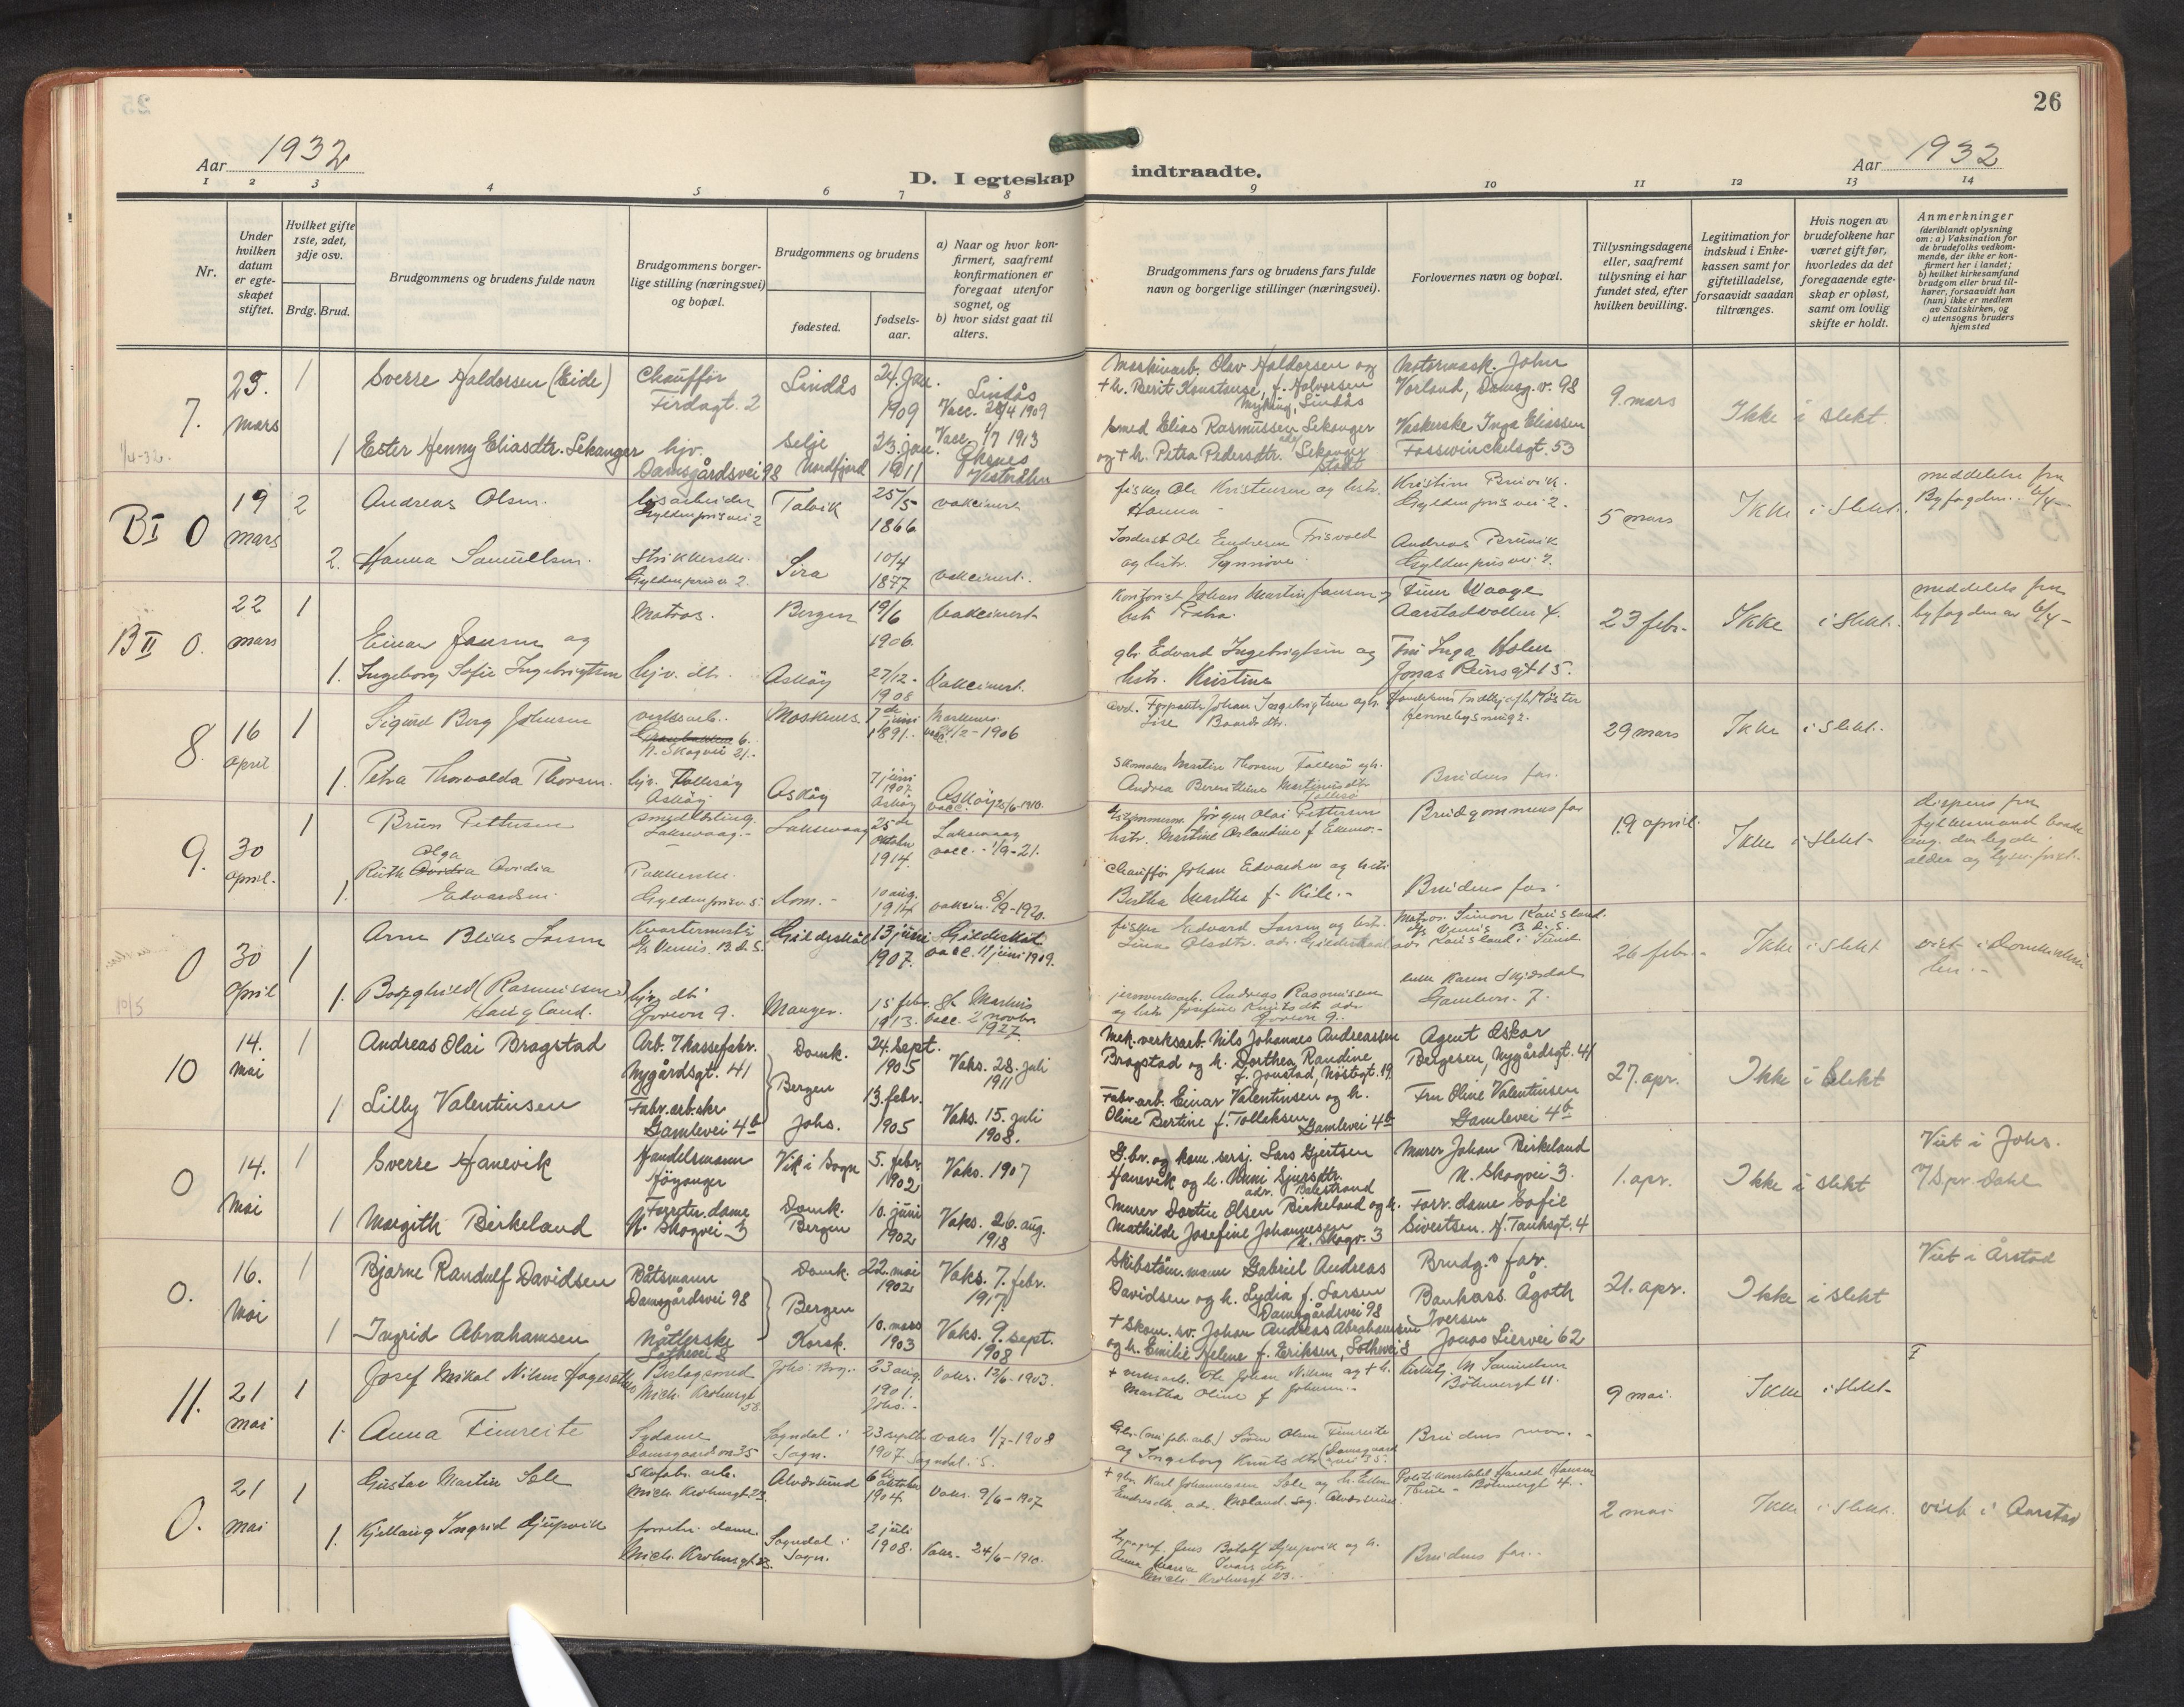 26
Aar 1932
D. I egteskap indtraadte.
Aar 1932
1 2 3 4 5 6 7 8 9 10 11 12 13 14
Nr.
Under hvilken datum er egteskapet stiftet.
Hvilket gifte 1ste, 2det, 3dje osv.
Brdg. Brud.
Brudgommens og brudens fulde navn
Brudgommens borgerlige stilling (næringsvei) og bopæl.
Brudgommens og brudens
fødested.
fødsels-aar.
a) Naar og hvor konfirmert, saafremt konfirmationen er foregaat utenfor sognet, og
b) hvor sidst gaat til alters.
Brudgommens fars og brudens fars fulde navn og borgerlige stillinger (næringsvei).
Forlovernes navn og bopæl.
Tillysningsdagene eller, saafremt tillysning ei har fundet sted, efter hvilken bevilling.
Legitimation for indskud i Enkekassen samt for giftetilladelse, forsaavidt saadan tiltrænges.
Hvis nogen av brudefolkene har været gift før, hvorledes da det foregaaende egteskap er opløst, samt om lovlig skifte er holdt.
Anmerkninger (deriblandt oplysning om: a) Vaksination for de brudefolks vedkommende, der ikke er konfirmert her i landet; b) hvilket kirkesamfund brudgom eller brud tilhører, forsaavidt han (hun) ikke er medlem av Statskirken, og c) utensogns bruders hjemsted
7. 25. mars 1 Sverre Haldorsen (Eide) Chauffør Firdagt. 2 Lindås 24. Jan. 1909 Lindås Vacc. 28/4 1909
Maskinarb. Olav Haldorsen og + h. Berit Konstanse, f. Halvorsen Myking, Lindås
Motormask. John Vorland, Damsg. v. 98
9. mars Ikke i slekt
1/4-32.
1 Ester Henny Eliasdtr. Sekanger hjv. Damsgårdsvei 98 Selje Nordfjord 23. jan. 1911 Vacc. 1/7 1913 Øksnes Vesterålen
smed Elias Rasmussen Sekanger og + h. Petra Pedersdtr. Sekanger Stadt
Vaskerske Inga Eliassen Fosswinckelsgt. 53
B I 0 19 mars 2 Andreas Olsen. Gyldenprisvei 2 Talvik 25/5 1866 vakcinert
fisker Ole Kristensen og hstr. Hanna
Kristine Brüvik. Gyldenprisvei 2.
5 mars Ikke i slekt. meddelelse fra Byfogden. 6/4-
2. Hanna Samuelsen. Strikkerske. Gyldenprisv. 2. Sira 10/4 1877 vakcinert.
Ole Endresen Frisvold og hstr. Synnöve.
Andreas Brüvik Gyldenprisvei 2.
B II 0. 22 mars 1 Einar Jansen og Matros. Bergen 19/6 1906. Vakcinert
Kontorist Johan Martin Jansen og hstr
Finn Waage Aarstadvollen 4.
23 febr.- Ikke i slekt. meddelelse fra byfogden av 6/4-
1. Ingeborg Sofie Ingebrigtsen hjv. dtr. Asköy 27/12-1908 Vakcinert.
gbr. Edvard Ingebrigtsen og hstr. Kristine
Fru Inga Holen Jonas Reinsgt 15.
8. 16 april 1 Sigurd Berg Johnsen verksarb. 6. N. Skogvei 21.- Moskenes. 7de juni 1891.- Moskenes 1906
29 mars Ikke i slekt.
1. Petra Thorvalda Thorsen. hjv. Follesöy Asköy Asköy 7 juni 1907. Asköy Asköy vacc. 25/6-1910.
Skomaker Martin Thorsen Follesö og h. Andrea Berentsine Martinusdtr Follesö
Brudens far.
9. 30 april. 1 Brun Pettersen smedlærling. Laksevaag.- Laksevaag 25de Oktober 1914. Laksevaag vacc.- 1/9-21.
Jörgen Olai Pettersen hstr. Martine
Brudgommens far
19 april. Ikke i slekt-
dispens fra fylkesmand
1. Ruth Olga Ovidia Edvardsen Pakkerske. Gyldenprisv. 5. dom.- 10 aug. 1914 vakcin. 8/9-1920.
Chauffør Johan Edvardsen og hstr Bertha Martha f. Kile.-
Brudens far.
0 30 April 1 Arne Larsen Kvartermester B.D.S. Gildeskål 13 juni 1907. Gildeskål vacc. 11 juni 1909.
fisker Edvard Larsen og hstr.
Matros. Simon Karisland. B.D.S.
26 febr.- Ikke i slekt viet i Domkirken.-
10/5
1. Borghild (Rasmussen) Haugland. hjv. dtr Manger. 15 febr. 1913. St Markus vacc. 2 novbr. 1927.
Andreas Rasmussen og hstr Josefine Knutsdtr.
10 14. mai 1 Andreas Olai Bragstad Arb. I kassefabr. Nygårdsgt. 41 Domk. Bergen 24. sept. 1905 Vaks. 28. juli 1911
Mek. verksarb. Nils Johannes Andreassen Bragstad og h. Dorthea Randine f. Jonstad, Nöstegt. 19
Agent Oskar Bergesen, Nygårdsgt. 41
27. apr. Ikke i slekt
1 Lilly Valentinsen Fabr. arb.ske Gamlevei 4b Johs. 13. febr. 1905 Vaks. 15. juli 1908.
Fabr arb. Einar Valentinsen og h. Oline Bertine f. Tolleksen Gamlevei 4b
Fru Oline Valentinsen Gamlevei 4b
0 14. Mai 1 Sverre Hanevik Handelsmann Höyanger Vik i Sogn 5. febr 1902 Vaks. 1907
G.br. og kom. sersj. Lars Gjertsen Hanevik og h. Unni Sjursdtr. adr. Balestrand
Murer Johan Birkeland N. Skogvei 3.
1. apr. Ikke i slekt Viet i Johs. 7/5 pr. Dahl
1 Margith Birkeland Forretn. dame N. Skogvei 3 Domk. Bergen 10. juni 1902 Vaks. 26. aug. 1918
Murer Dortin Olsen Birkeland og h. Mathilde Josefine Johannesen N. Skogv. 3
Forr. dame Sofie Sivertsen. H. Tanksgt. 4
0. 16. Mai 1 Bjarne Randulf Davidsen Båtsmann Damsgårdsvei 98 Domk. Bergen 22. mai 1902 Vaks. 7. febr. 1917.
Skibstöm.mann Gabriel Andreas Davidsen og h. Lydia f. Larsen Damsgårdsvei 98
Brudg.s far.
21. apr. Ikke i slekt Viet i Årstad
1 Ingrid Abrahamsen Måtlerske Sothevei 8 Korsk. 10. mars 1903 Vaks. 9. sept. 1908
+ Skom. sv. Johan Andreas Abrahamsen og h. Emilie Helene f. Eriksen, Sothevei 8
Bankass. Ågoth Iversen Jonas Liesvei 62
11. 21 mai 1 Josef Mikal Nilsen Beslagsmed Mich. Krohnsgt 58. 23 aug. 1901. Johs.- Vaks. 13/6-1903.
+ verksarb. Ole Johan Nilsen og + h. Martha Oline f Johnsen.-
M Samuelsen Böhmergt 11.
9 mai. Ikke i slekt-
1. Anna Timreite Sydame Damsgaardsv 35 Sogndal i Sogn. 23 septbr 1907 vaks 1/7-1908 Sogndal. S.
Gbr. (nu fabr. arb.) Sören Olsen Timreite og Ingeborg Knutsdtr (Damsgaardsvei 35.
Brudens mor.-
0. 21 mai 1 Gustav Martin Sæle Skofabr. arb. Mich. Krohnsgt 23. Alversund 6te oktober 1904 Vaks. 9/6-1907
+ gbr. Karl Johannessen Sæle og h. Ellen Endresdtr
Politikonstabel Harald Hansen Böhmergt 4.
2 mai Ikke i slekt. viet i Aarstad
1. Kjellaug Ingrid Djupvik forretn. dame. Mich. Krohnsgt 23. Sogndal i Sogn. 2 juli 1908. Vaks.- 24/6-1910.
Typograf. Jens Botolf Djupvik og h. Anna Maria Ivarsdtr Mich. Krohnsgt 23.
Brudens far..